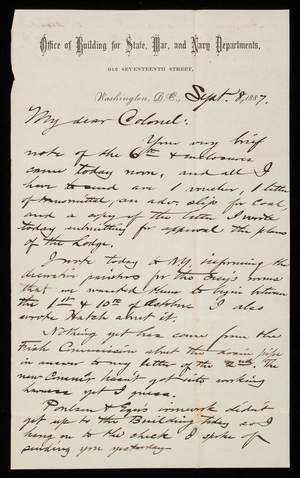 Office of Building for State, War, and Navy Departments,
612 SEVENTEENTH STREET,
Washington, D.C., Sept. 8, 1887.
My dear Colonel:
Your very brief
note of the 6th & enclosures
came today noon, and all I
have to send are 1 voucher, 1 letter
transmitted, an adv. slip for Coal,
and a copy of the letter I wrote
today submitting for approval the plans
of the Lodge.
I wrote today to N.Y. informing the
decorative painters for the Secy's rooms
that we wanted them to begin between
the 1st & 10th of October. I also
wrote Hatch about it.
Nothing yet has come from the
Fish Commission about the drain pipe
in answer to my letter of the 2nd. The
new Comm'r hasn't got into working
harness yet I guess.
Poulson & Eger's ironwork didn't
get up to the Building today so I
hang on to the check I spoke of
sending you yesterday